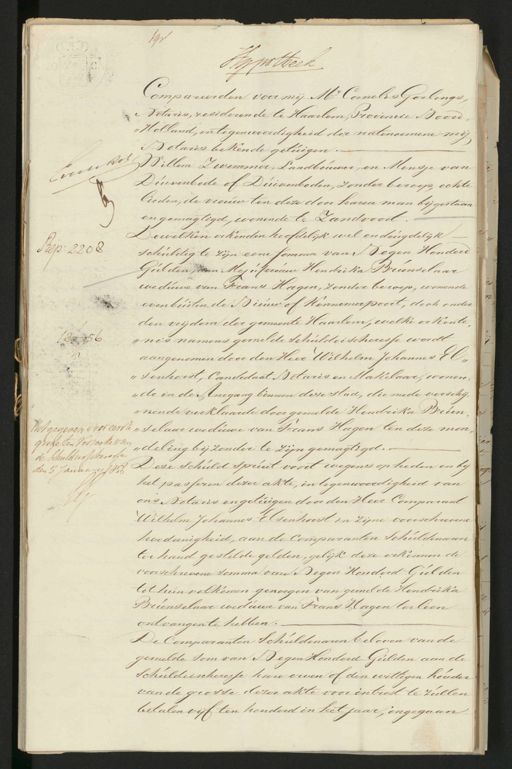 Hypotheek
Compareerden voor mij Mr. Cornelis Goslings,
Notaris, residerende te Haarlem, Provincie Noord-
Holland, in tegenwoordigheid der natenoemen mij
Notaris bekende getuigen.
Willem Zwemmer, Landbouwer, en Mensje van
Duivenbode of Duivenboden, zonder beroep, echte
lieden, de vrouw ten deze door haren man bijgestaan
en gemagtigd, wonende te Zandvoord.
Dewelken erkenden hoofdelijk wel en deugdelijk
schuldig te zijn eene somma van Negen Honderd
Gulden, aan Mejufvrouw Hendrika Bruinselaar
weduwe van Frans Hagen, zonder beroep, wonende
even buiten de Nieuwe of Kennemerpoort, doch onder
den vrijdom der gemeente Haarlem, welke erkente-
nes namens gemelde schuldeischeresse wordt
aangenomen door den Heer Wilhelm Johannes
Candidaat Notaris en Makelaar, wonen-
de in den Anegang binnen deze stad, die mede verschij-
nende verklaarde door gemelde Hendrika Bruin-
selaar weduwe van Frans Hagen ten deze mon-
deling bijzonder te zijn gemagtigd.
Deze schuld spruit voort wegens op heden en bij
het passeren dezer akte, in tegenwoordigheid van
ons Notaris en getuigen door den Heer Comparant
Wilhelm Johannes in zijne voorschrevene
hoedanigheid, aan de Comparanten Schuldenaren
ter hand gestelde gelden, gelijk deze erkennen de
voorschreven somma van Negen Honderd Gulden
tot hun volkomen genoegen van gemelde Hendrika
Bruinselaar weduwe van Frans Hagen ter leen
ontvangen te hebben.
De Comparanten Schuldenaren beloven van de
gemelde som van Negen Honderd Gulden aan de
Schuldeischeresse hare erven of den wettigen houder
van de grosse dezer akte voor intrest te zullen
betalen vijf ten honderd in het jaar, ingegaan
Rep: 2208